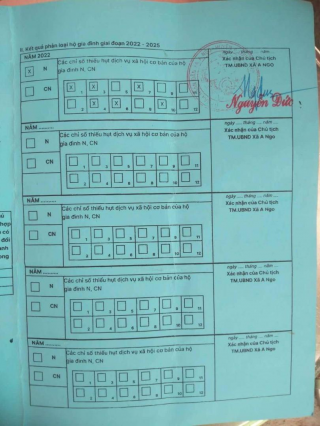 II. Kết quả phân loại hộ gia đình giai đoạn 2022 - 2025
NĂM 2022
X N
CN
Các chỉ số thiếu hụt dịch vụ xã hội cơ bản của hộ
gia đình N, CN
1 3 5 7 9 11
2 4 6 8 10 12
ngày ... tháng ... năm ...
Xác nhận của Chủ tịch
TM.UBND Xã A NGO
Nguyễn Đức
NĂM .........
N
CN
Các chỉ số thiếu hụt dịch vụ xã hội cơ bản của hộ
gia đình N, CN
1 3 5 7 9 11
2 4 6 8 10 12
ngày ... tháng ... năm ...
Xác nhận của Chủ tịch
TM.UBND Xã A Ngo
NĂM .........
N
CN
Các chỉ số thiếu hụt dịch vụ xã hội cơ bản của hộ
gia đình N, CN
1 3 5 7 9 11
2 4 6 8 10 12
ngày ... tháng ... năm ...
Xác nhận của Chủ tịch
TM.UBND Xã A Ngo
NĂM .........
N
CN
Các chỉ số thiếu hụt dịch vụ xã hội cơ bản của hộ
gia đình N, CN
1 3 5 7 9 11
2 4 6 8 10 12
ngày ... tháng ... năm ...
Xác nhận của Chủ tịch
TM.UBND Xã A Ngo
NĂM .........
N
CN
Các chỉ số thiếu hụt dịch vụ xã hội cơ bản của hộ
gia đình N, CN
1 3 5 7 9 11
2 4 6 8 10 12
ngày ... tháng ... năm ...
Xác nhận của Chủ tịch
TM.UBND Xã A Ngo